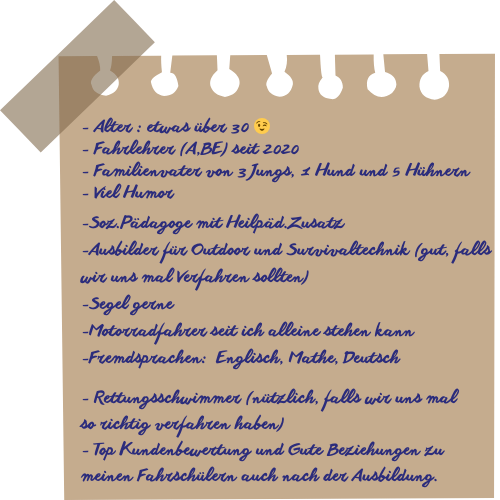 - Alter : etwas über 30 😉
- Fahrlehrer (A,BE) seit 2020
- Familienvater von 3 Jungs, 1 Hund und 5 Hühnern
- Viel Humor
-Soz.Pädagoge mit Heilpäd.Zusatz
-Ausbilder für Outdoor und Survivaltechnik (gut, falls
wir uns mal Verfahren sollten)
-Segel gerne
-Motorradfahrer seit ich alleine stehen kann
-Fremdsprachen: Englisch, Mathe, Deutsch
- Rettungsschwimmer (nützlich, falls wir uns mal
so richtig verfahren haben)
- Top Kundenbewertung und Gute Beziehungen zu
meinen Fahrschülern auch nach der Ausbildung.